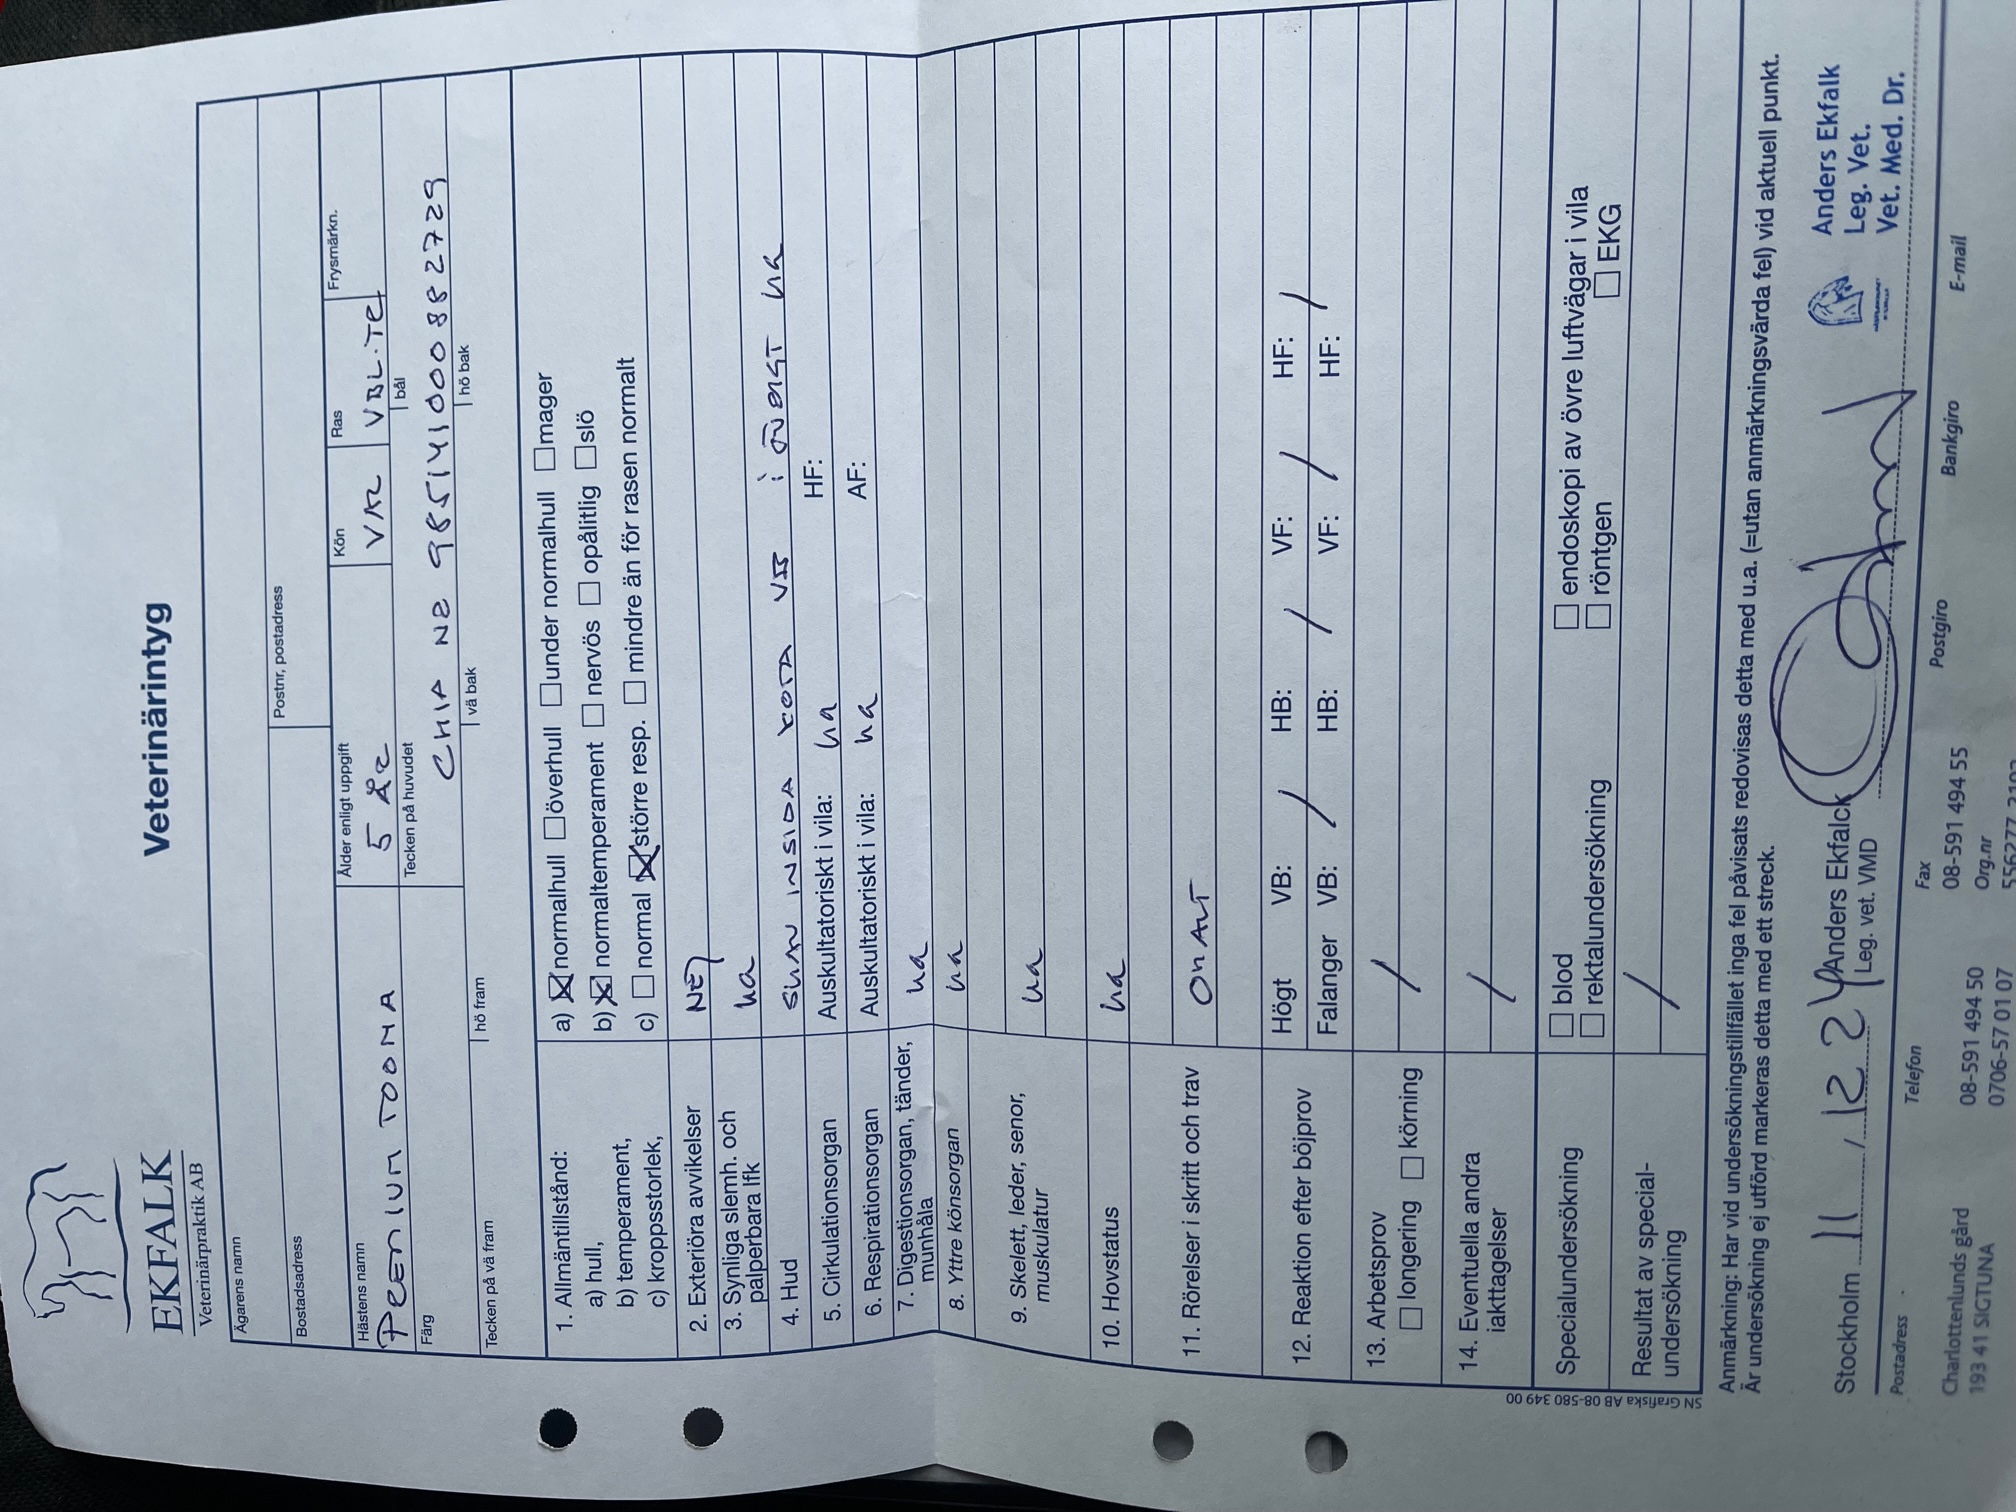 EKFALK
Veterinärpraktik AB
Veterinärintyg
Ägarens namn
Bostadsadress
Postnr, postadress
Hästens namn
Ålder enligt uppgift
Kön
Ras
Frysmärkn.
5 år
VAL
VBL.TR
Färg
Tecken på huvudet
bål
CHIP NR 985141000882729
Tecken på vä fram
hö fram
vä bak
hö bak
1. Allmäntillstånd:
a) hull,
b) temperament,
c) kroppsstorlek,
a) normalhull överhull under normalhull mager
b) normaltemperament nervös opålitlig slö
c) normal större resp. mindre än för rasen normalt
2. Exteriöra avvikelser NEJ
3. Synliga slemh. och palperbara lfk ua
4. Hud INSIDA KOTA VB i övrigt ua
5. Cirkulationsorgan Auskultatoriskt i vila: ua HF:
6. Respirationsorgan Auskultatoriskt i vila: ua AF:
7. Digestionsorgan, tänder, munhåla ua
8. Yttre könsorgan ua
9. Skelett, leder, senor, muskulatur ua
10. Hovstatus ua
11. Rörelser i skritt och trav
12. Reaktion efter böjprov
Högt VB: / HB: / VF: / HF: /
Falanger VB: HB: VF: HF:
13. Arbetsprov
longering körning /
14. Eventuella andra iakttagelser /
Specialundersökning
blod endoskopi av övre luftvägar i vila
rektalundersökning röntgen EKG
Resultat av special-
undersökning /
Anmärkning: Har vid undersökningstillfället inga fel påvisats redovisas detta med u.a. (=utan anmärkningsvärda fel) vid aktuell punkt.
Är undersökning ej utförd markeras detta med ett streck.
Stockholm 11 / 12 24
Anders Ekfalck
Leg. vet. VMD
Anders Ekfalk
Leg. Vet.
Vet. Med. Dr.
Postadress
Telefon
Fax
Postgiro
Bankgiro
E-mail
Charlottenlunds gård
193 41 SIGTUNA
08-591 494 50
0706-57 01 07
08-591 494 55
Org.nr
SN Grafiska AB 08-580 349 00